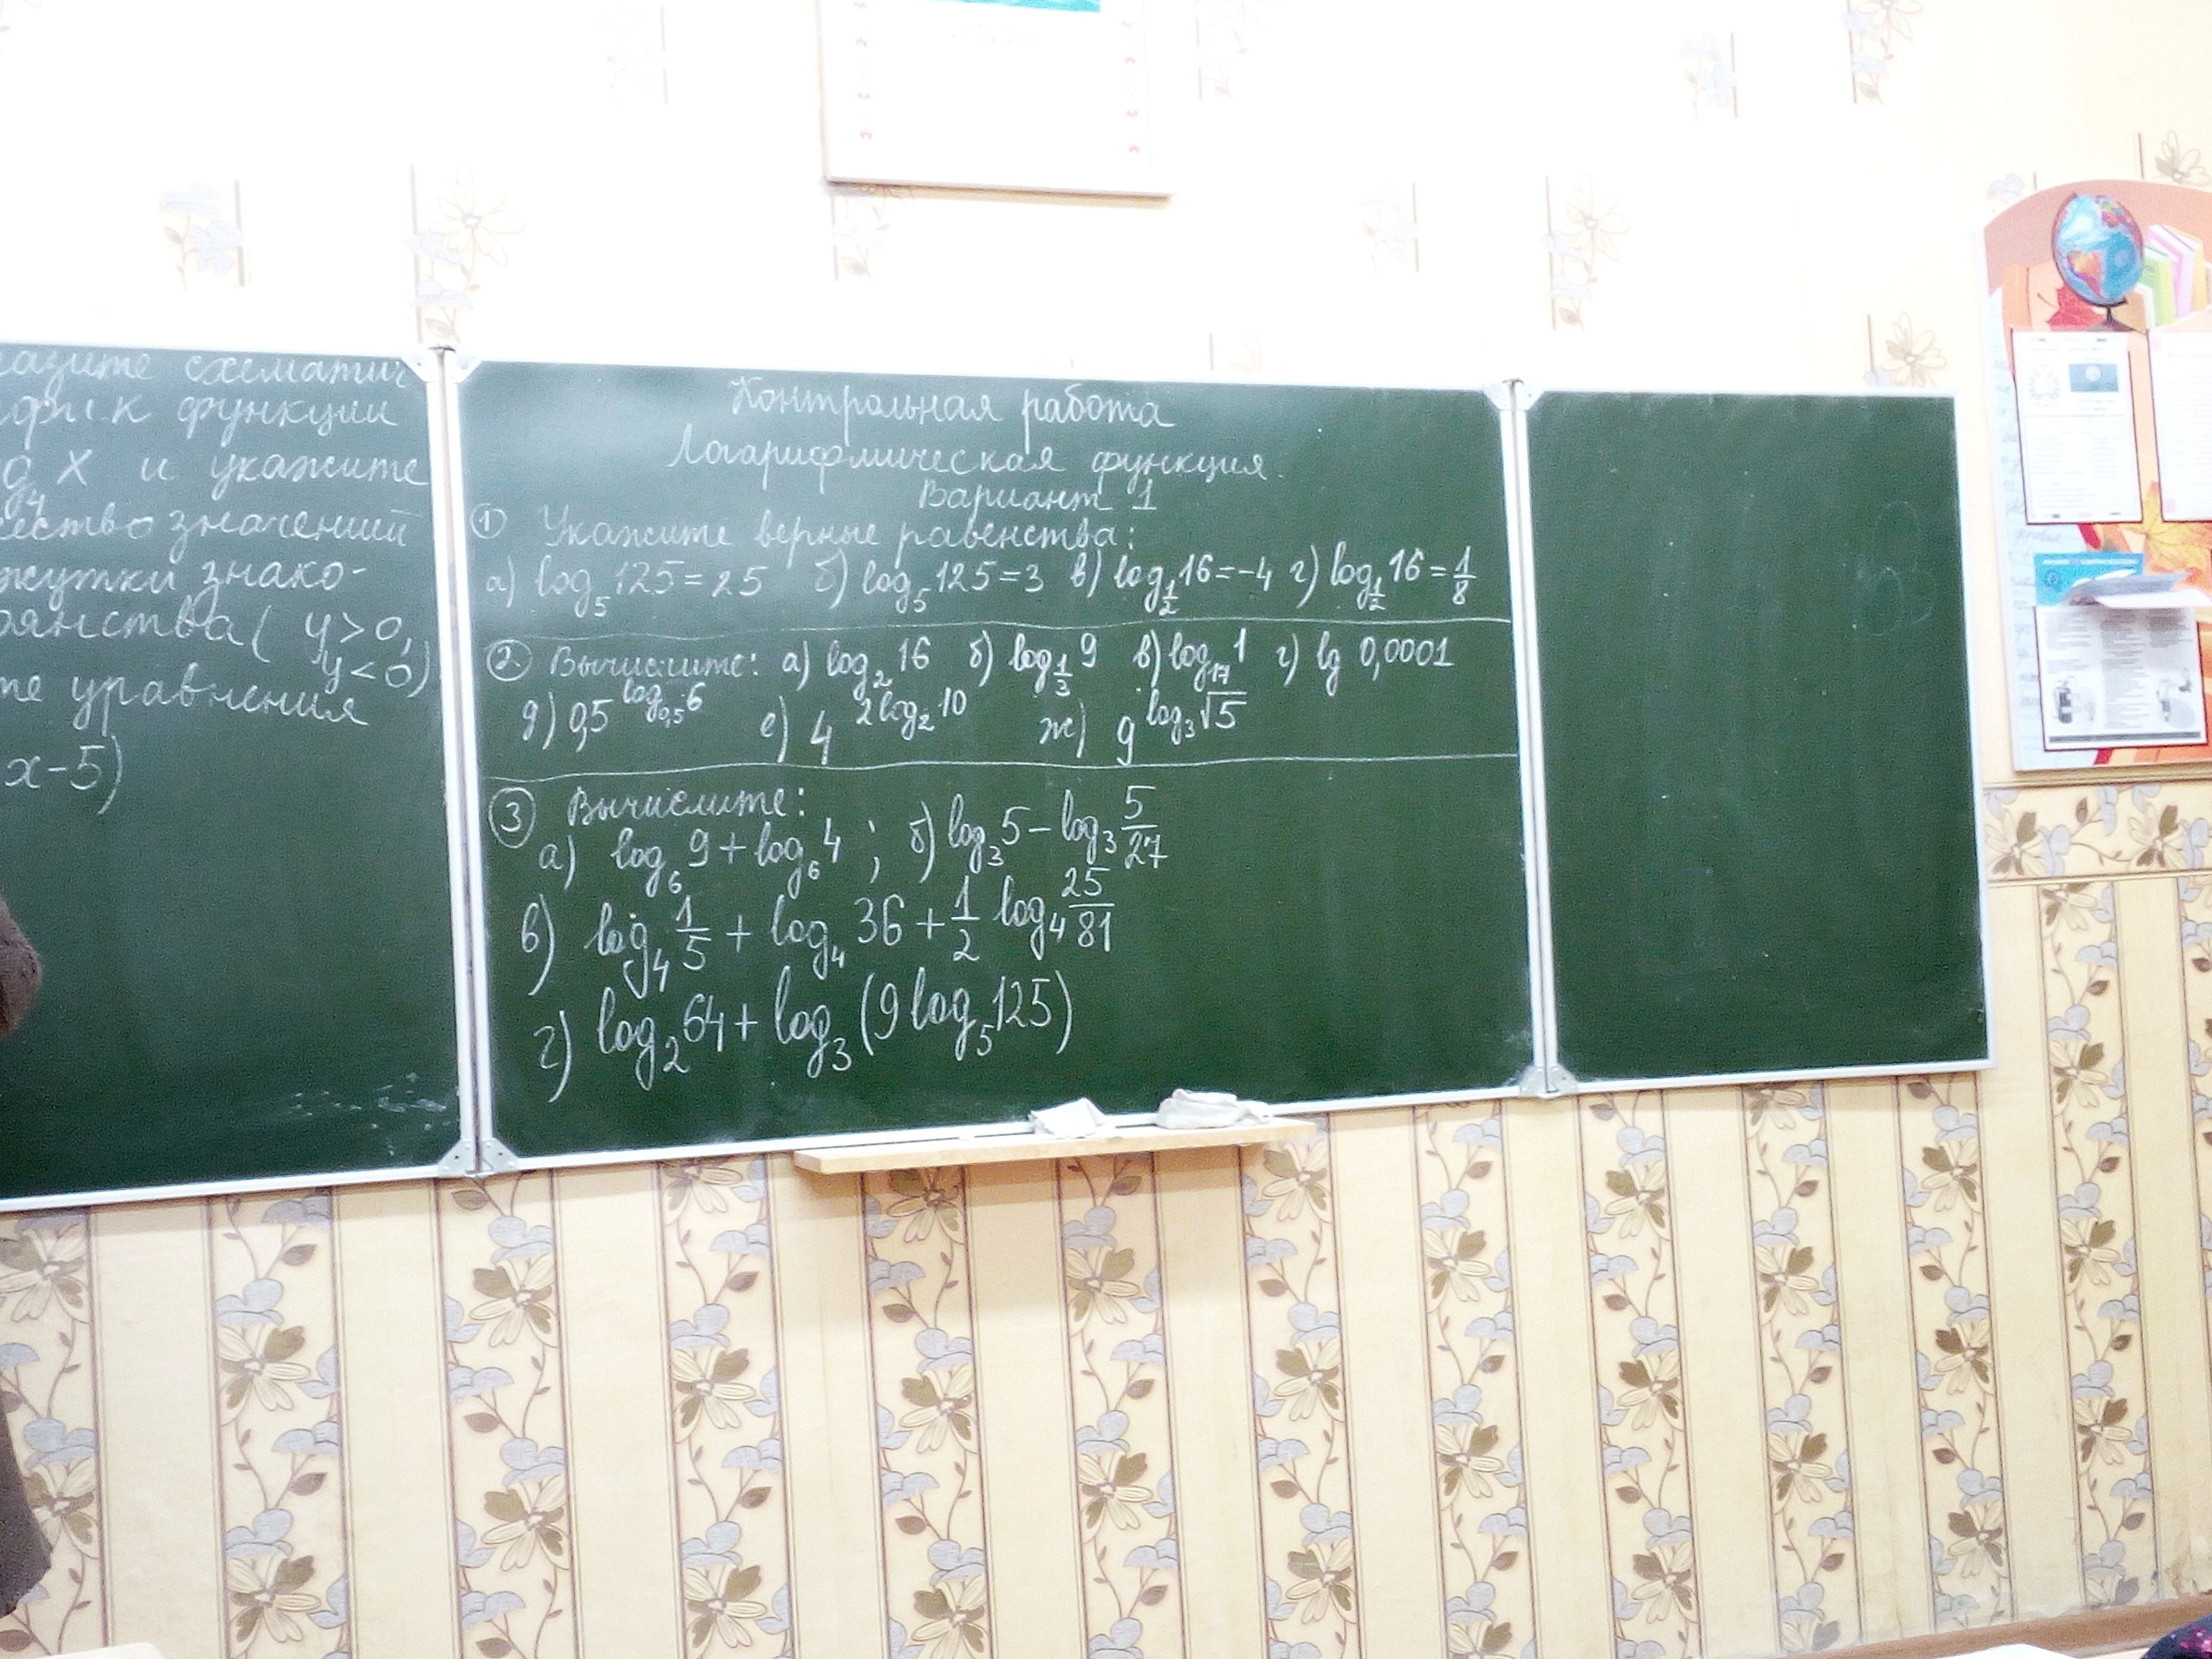 схематич
к функции
x и укажите
значений
знако-
( y>0,
y<0)
уравнения
x-5)
Контрольная работа
Логарифмическая функция.
Вариант 1
① Укажите верные равенства:
а) log₅125=25 б) log₅125=3 в) log_{1/2}16=-4 г) log_{1/2}16=1/8
② Вычислите: а) log₂16 б) log_{1/3}9 в) log₁₇1 г) lg 0,0001
д) 0,5^{log_{0,5}6} е) 4^{2log₂10} ж) 9^{log₃√5}
③ Вычислите:
а) log₆9+log₆4 ; б) log₃5-log₃5/27
в) log₄1/5+log₄36+1/2 log₄25/81
г) log₂64+log₃(9log₅125)